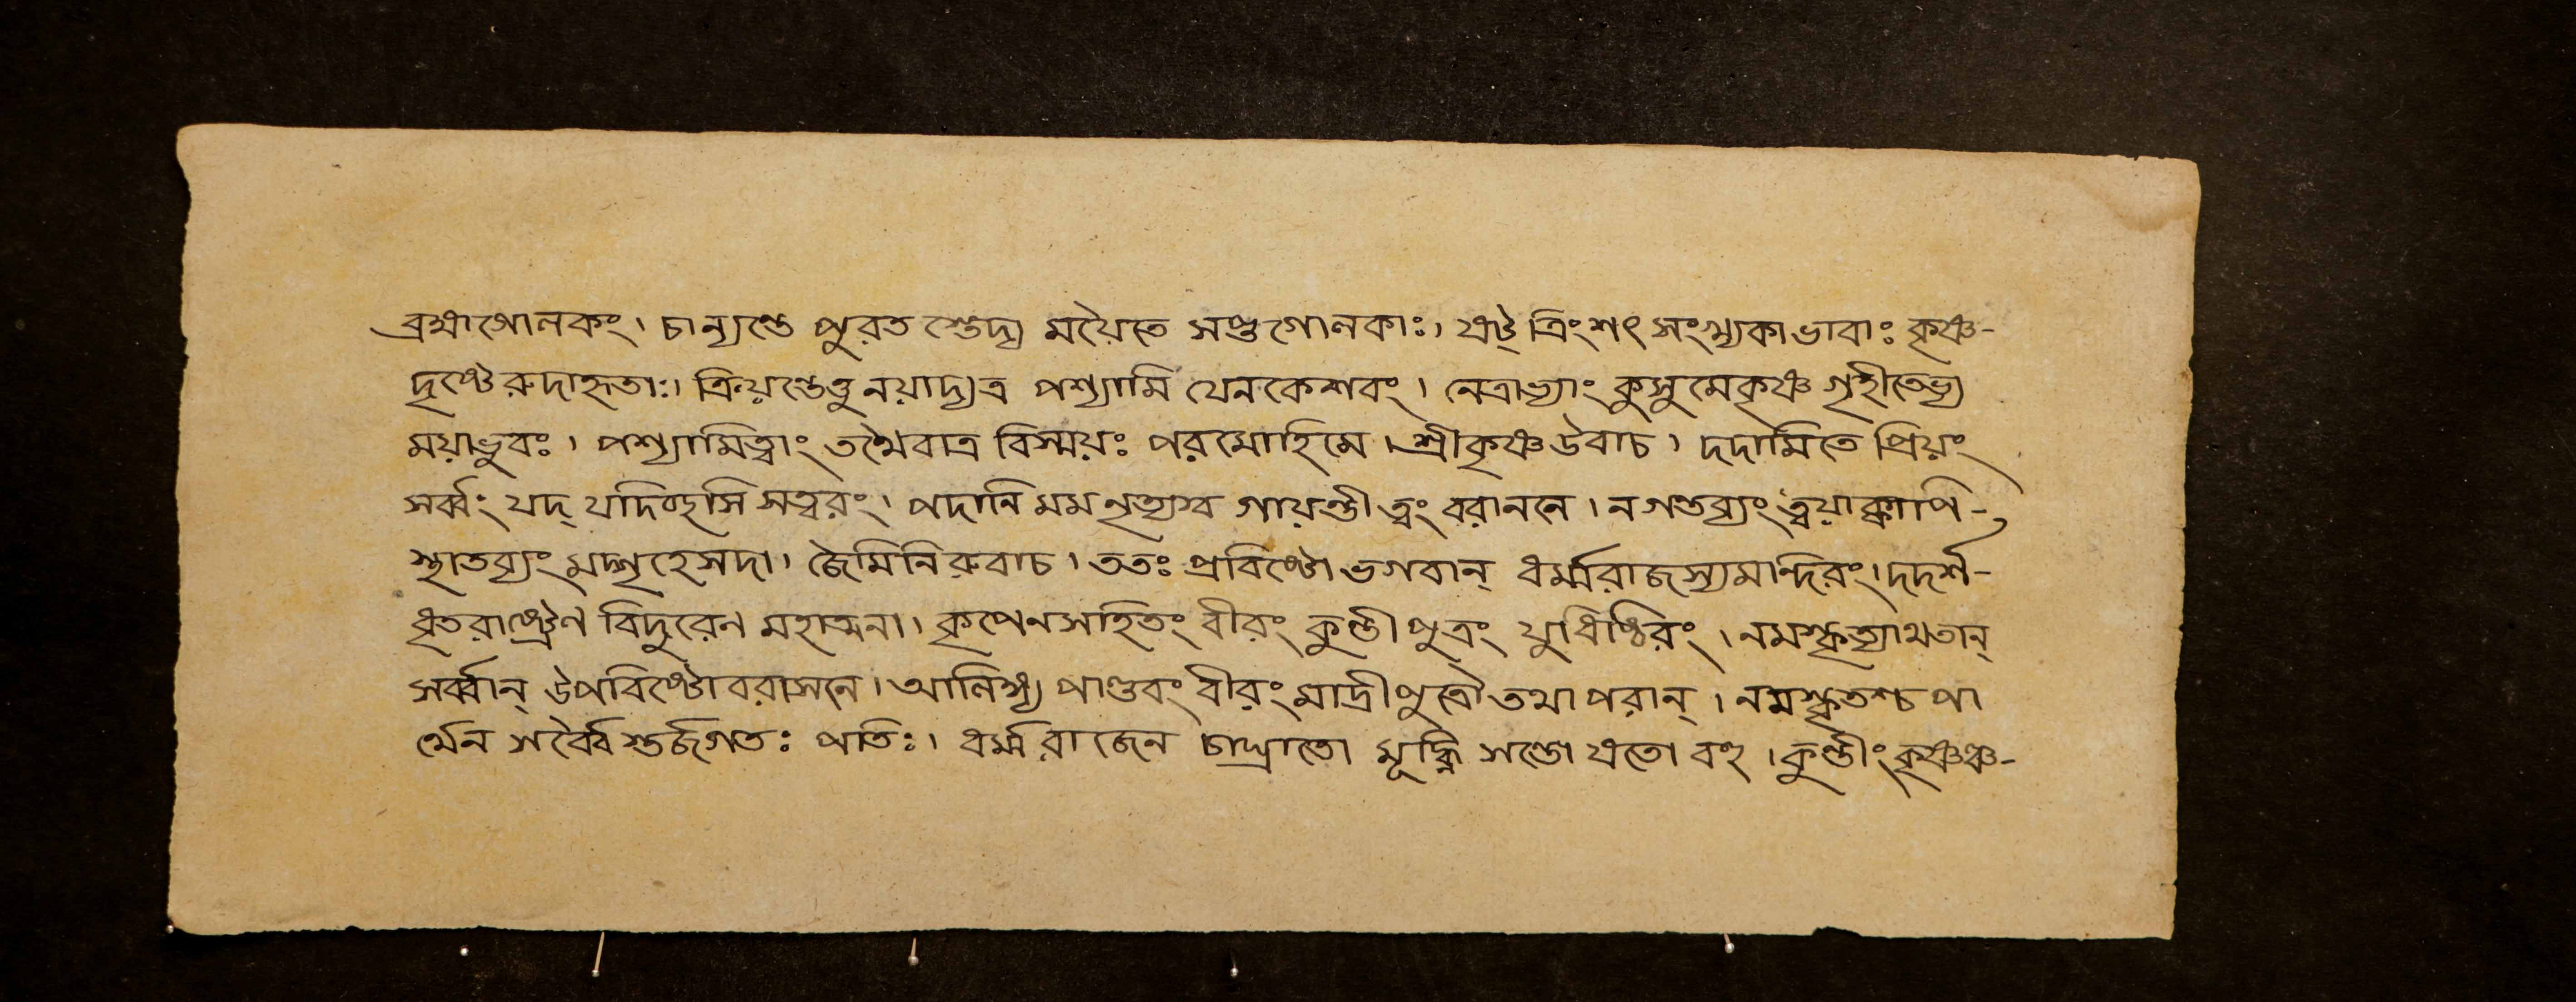 ব্রহ্মাগোলকং। চান্যন্তে পুরত স্তেদ্য ময়ৈতে সপ্তগোলকাঃ। ষট্ ত্রিংশৎ সংখ্যকাভাবাঃ কৃষ্ণ-
দৃষ্টেরুদাহৃতাঃ। ক্রিয়ন্তেতুনয়াদ্যত্র পশ্যামি যেনকেশবং। নেত্রাভ্যাং কুসুমেকৃষ্ণ গৃহীতেভ্য
ময়াভুবঃ। পশ্যামিত্বাং তথৈবাত্র বিস্ময়ঃ পরমোহিমে। শ্রীকৃষ্ণউবাচ। দদামিতে প্রিয়ং
সর্ব্বং যদ্ যদিচ্ছসি সত্বরং। পদানি মমনৃত্যস্ব গায়ন্তী ত্বং বরাননে। নগন্তব্যং ত্বয়াক্কাপি-
স্থাতব্যং মদ্গৃহেসদা। জৈমিনিরুবাচ। ততঃ প্রবিষ্টোভগবান্ ধর্ম্মরাজস্যমান্দিরং। দদর্শ-
ধৃতরাষ্ট্রেণ বিদুরেন মহাত্মনা। কৃপেনসহিতং বীরং কুন্তীপুত্রং যুধিষ্ঠিরং। নমস্কৃত্যাথতান্
সর্ব্বান্ উপবিষ্টোবরাসনে। আলিঙ্গ্য পাণ্ডবং বীরং মাদ্রীপুত্রৌতথাপরান্। নমস্কৃতশ্চপা
র্থেন সর্ব্বৈ স্তর্জগতঃ পতিঃ। ধর্ম্মরাজেন চাঘ্রাতো মূর্দ্ধ্নি সন্তোষতো বহু। কুন্তীং কৃষ্ণঞ্চ-